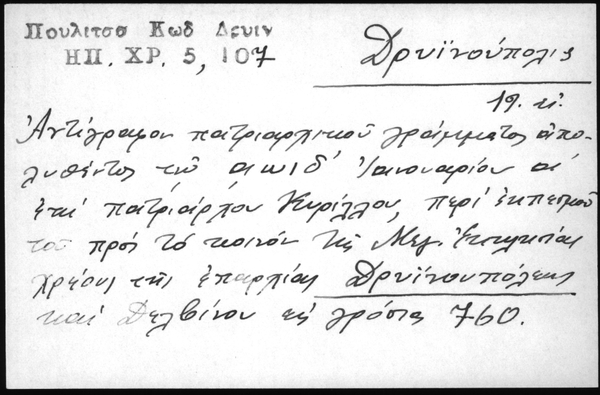 Πουλιτσα Κωδ Δρυιν
ΗΠ. ΧΡ. 5, 107
Δρυϊνούπολις
19. αἰ.
Ἀντίγραφον πατριαρχικοῦ γράμματος ἀπο-
λυθέντος τῷ αωιδ' Ἰανουαρίου α'
ἐπί πατριάρχου Κυρίλλου, περί ἐκπεσμοῦ
τοῦ πρός τό κοινόν τῆς Μεγ. Ἐκκλησίας
χρέους τῆς ἐπαρχίας Δρυϊνουπόλεως
καί Δελβίνου εἰς γρόσια 760.